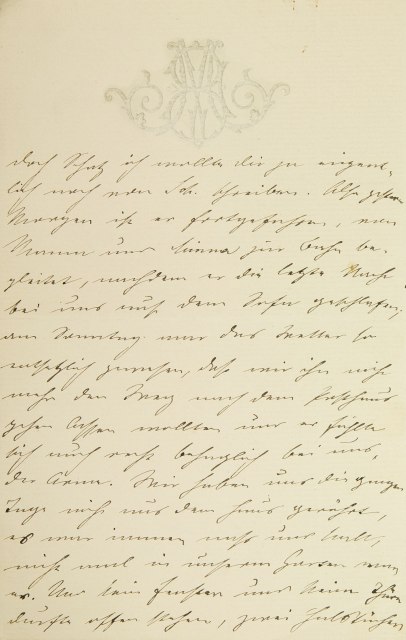 doch Schatz ich wollte dir ja eigent-
lich noch von Sch. schreiben. Also gestern
Morgen ist er fortgefahren, von
Mama und Minna zur Bahn be-
gleitet, nachdem er die letzte Nacht
bei uns auf dem Sofa geschlafen;
am Sonntag war das Wetter so
entsetzlich gewesen, daß wir ihn nicht
mehr den Weg nach dem Posthaus
gehen lassen wollten und er fühlte
sich auch recht behaglich bei uns,
der Arme. Wir haben uns die ganzen
Tage nicht aus dem Haus gerührt,
es war immer naß und kalt,
nicht mal in unserm Garten war
er. Nur kein Fenster und keine Thür
durfte offen stehen, zwei